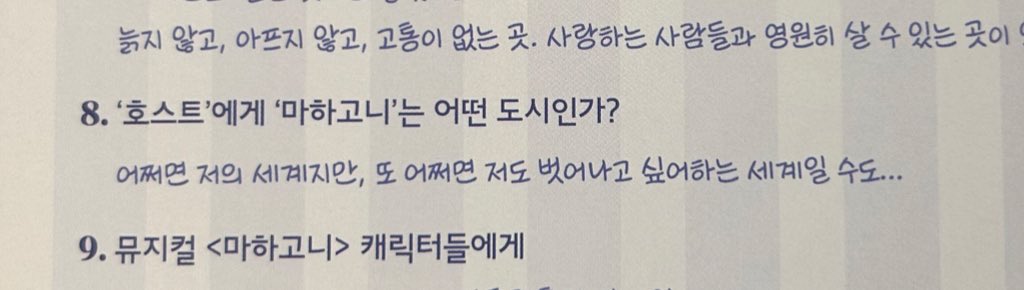 늙지 않고, 아프지 않고, 고통이 없는 곳. 사랑하는 사람들과 영원히 살 수 있는 곳이
8. ‘호스트’에게 ‘마하고니’는 어떤 도시인가?
어쩌면 저의 세계지만, 또 어쩌면 저도 벗어나고 싶어하는 세계일 수도...
9. 뮤지컬 <마하고니> 캐릭터들에게